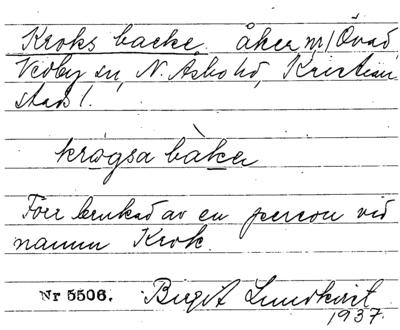 Kroks backe. åker nr 1 Övad,
Vedby sn, N. Åsbo hd, Kristian
stads l.
krɷgsa bàkeɴ
Förr brukad av en person vid
namn Krok.
Nr 5506. Birgit Lundkvist
1937.